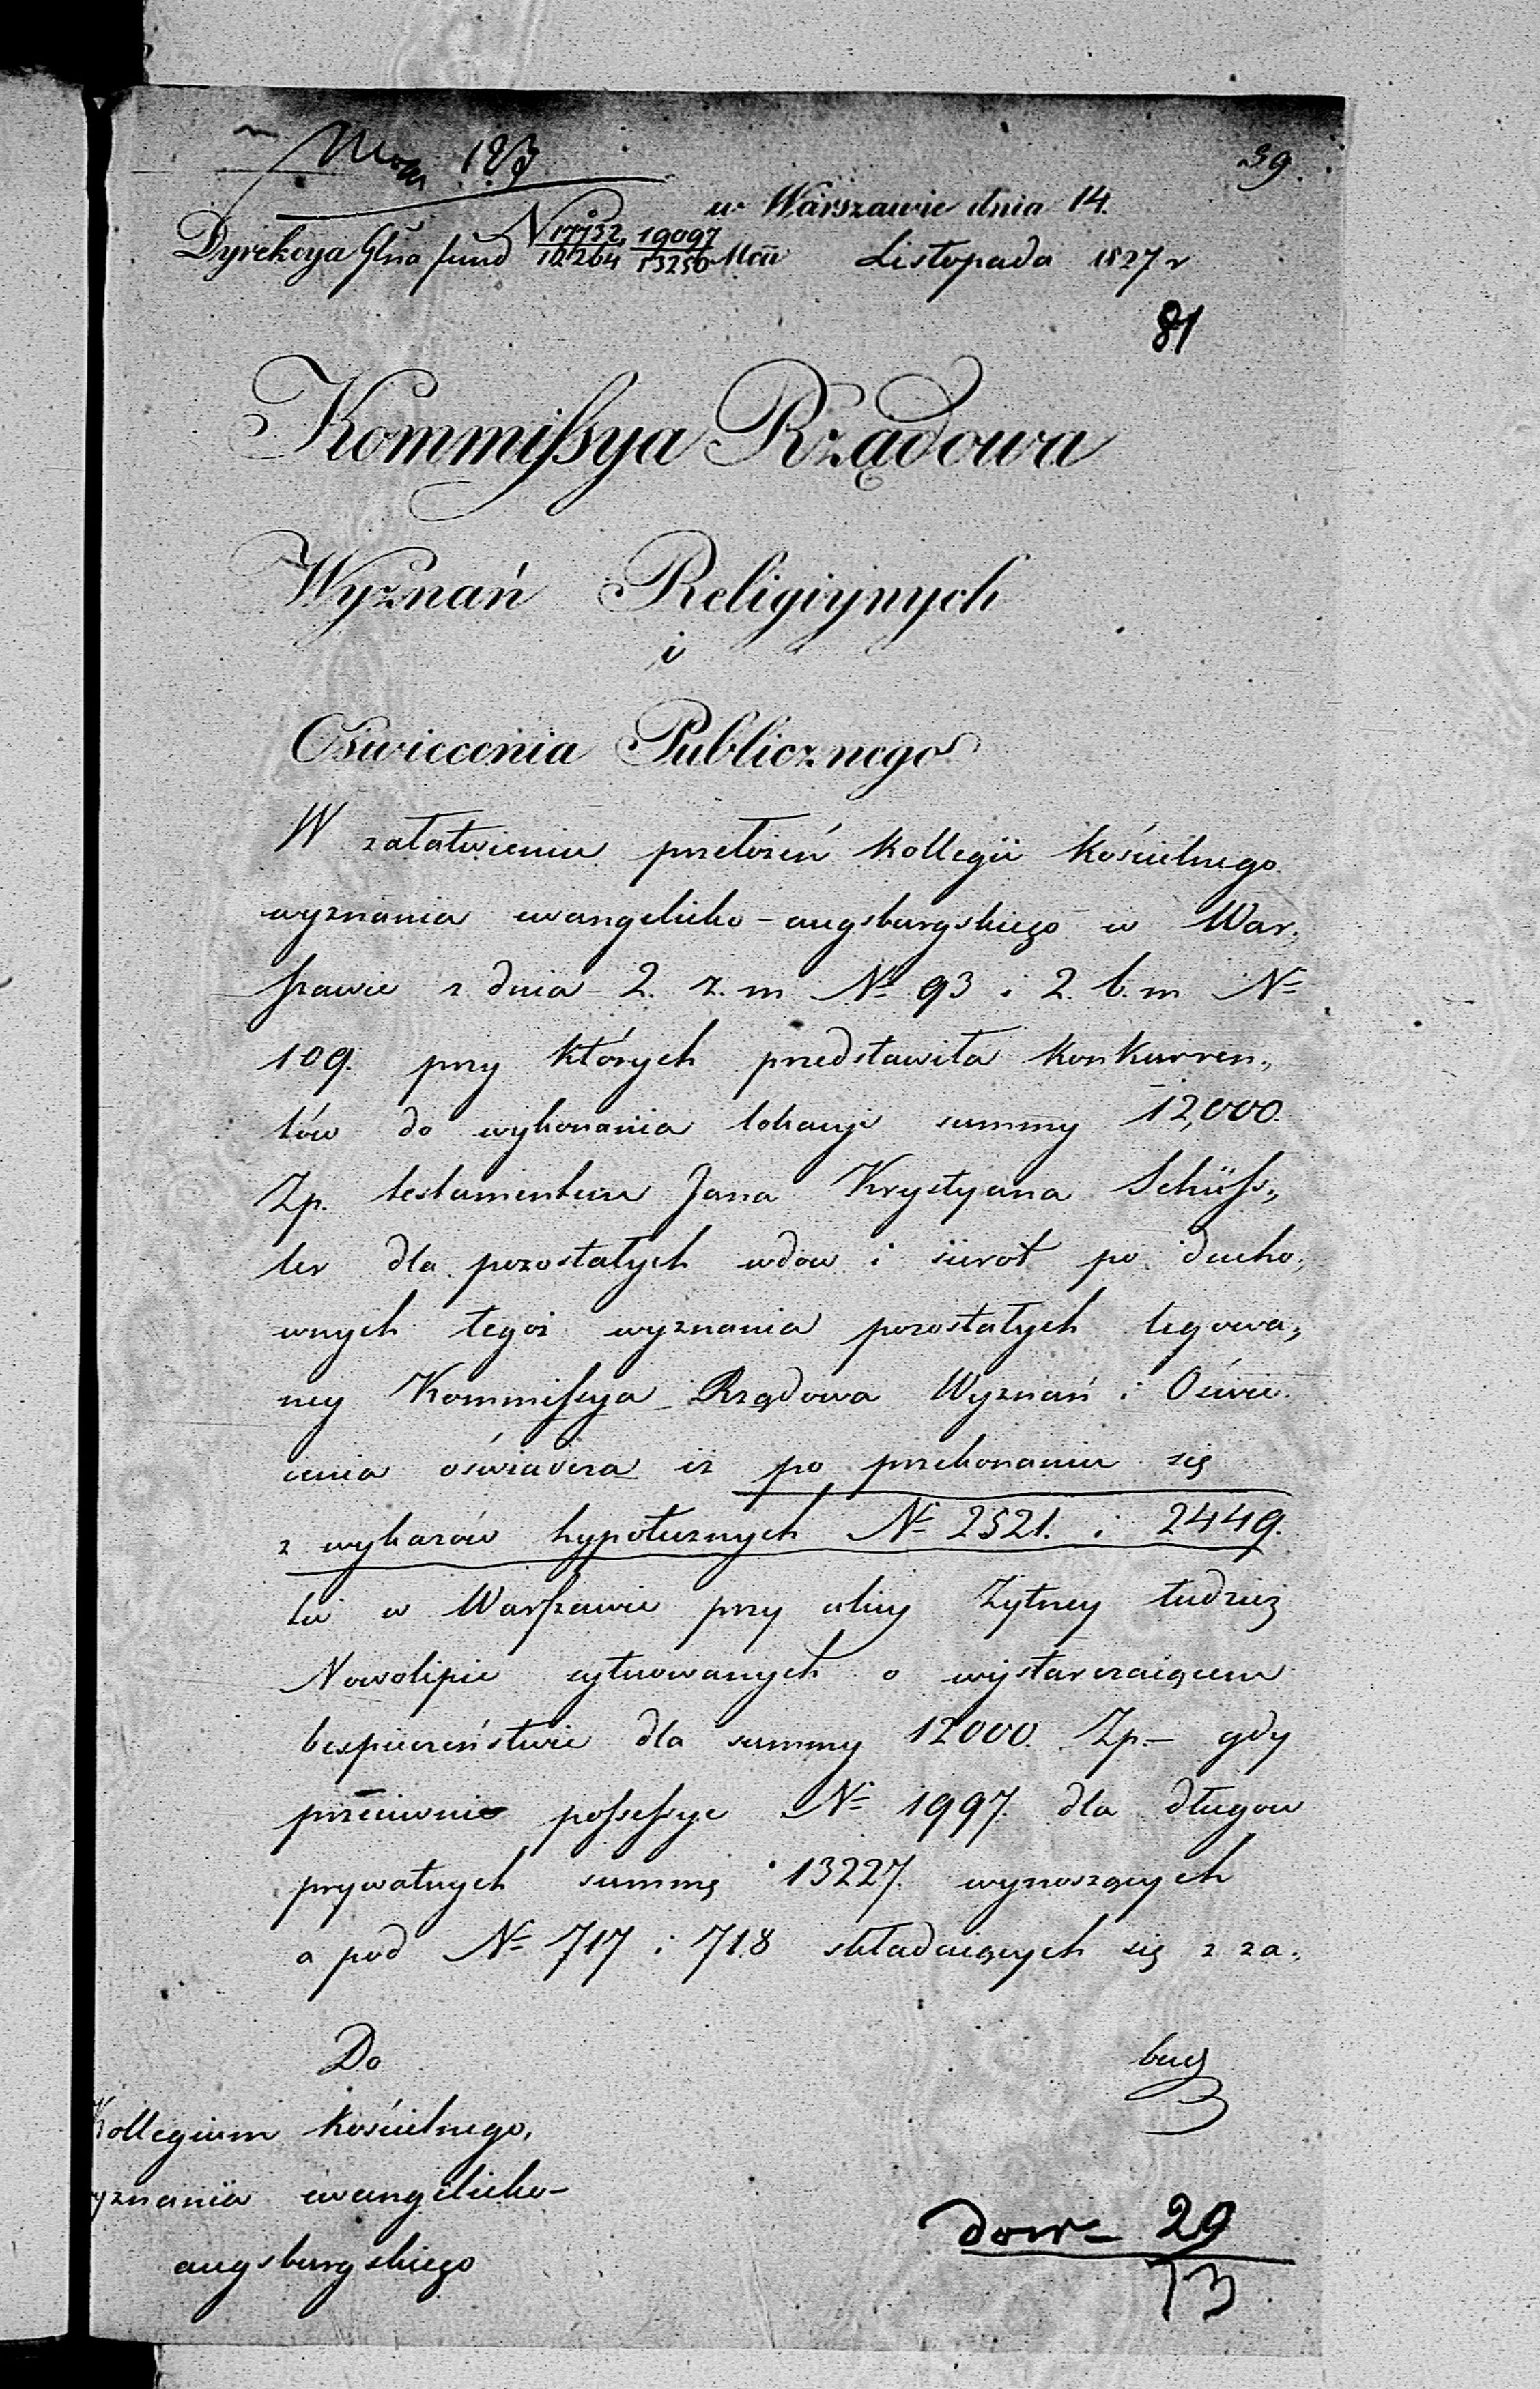 123
39.
w Warszawie dnia 14.
Dyrekcya Glna fund N 17732, 19097 Listopada 1827 r
12264 13250
81
Kommissya Rządowa
Wyznań Religiynych
i
Oświecenia Publicznego
W załatwieniu przełożeń Kollegii Kościelnego
wyznania ewangelicko-augsburgskiego w War,
szawie z dnia 2. z. m № 93 i 2. b. m №
109. przy których przedstawiła Konkurren,
tów do wykonania lokacyi summy 12,000.
Zp. testamentem Jana Krystyana Schüss,
ler dla pozostałych wdow i sierot po ducho,
wnych tegoż wyznania pozostałych legowa,
ney Kommissya Rządowa Wyznań i Oświe.
cenia oświadcza iż po przekonaniu się
z wykazów hypotecznych № 2521. i 2449.
tu w Warszawie przy ulicy Żytney tudzież
Nowolipie sytuowanych o wystarczaiącem
bespieczeństwie dla summy 12000. Zp.- gdy
przeciwnie possessye № 1997. dla długow
prywatnych summę 13227. wynoszących
a pod № 717 i 718 składaiących się z za,
Do
buq
Kollegium Kościelnego,
wyznania ewangelicko-
augsburgskiego
dow- 29
73